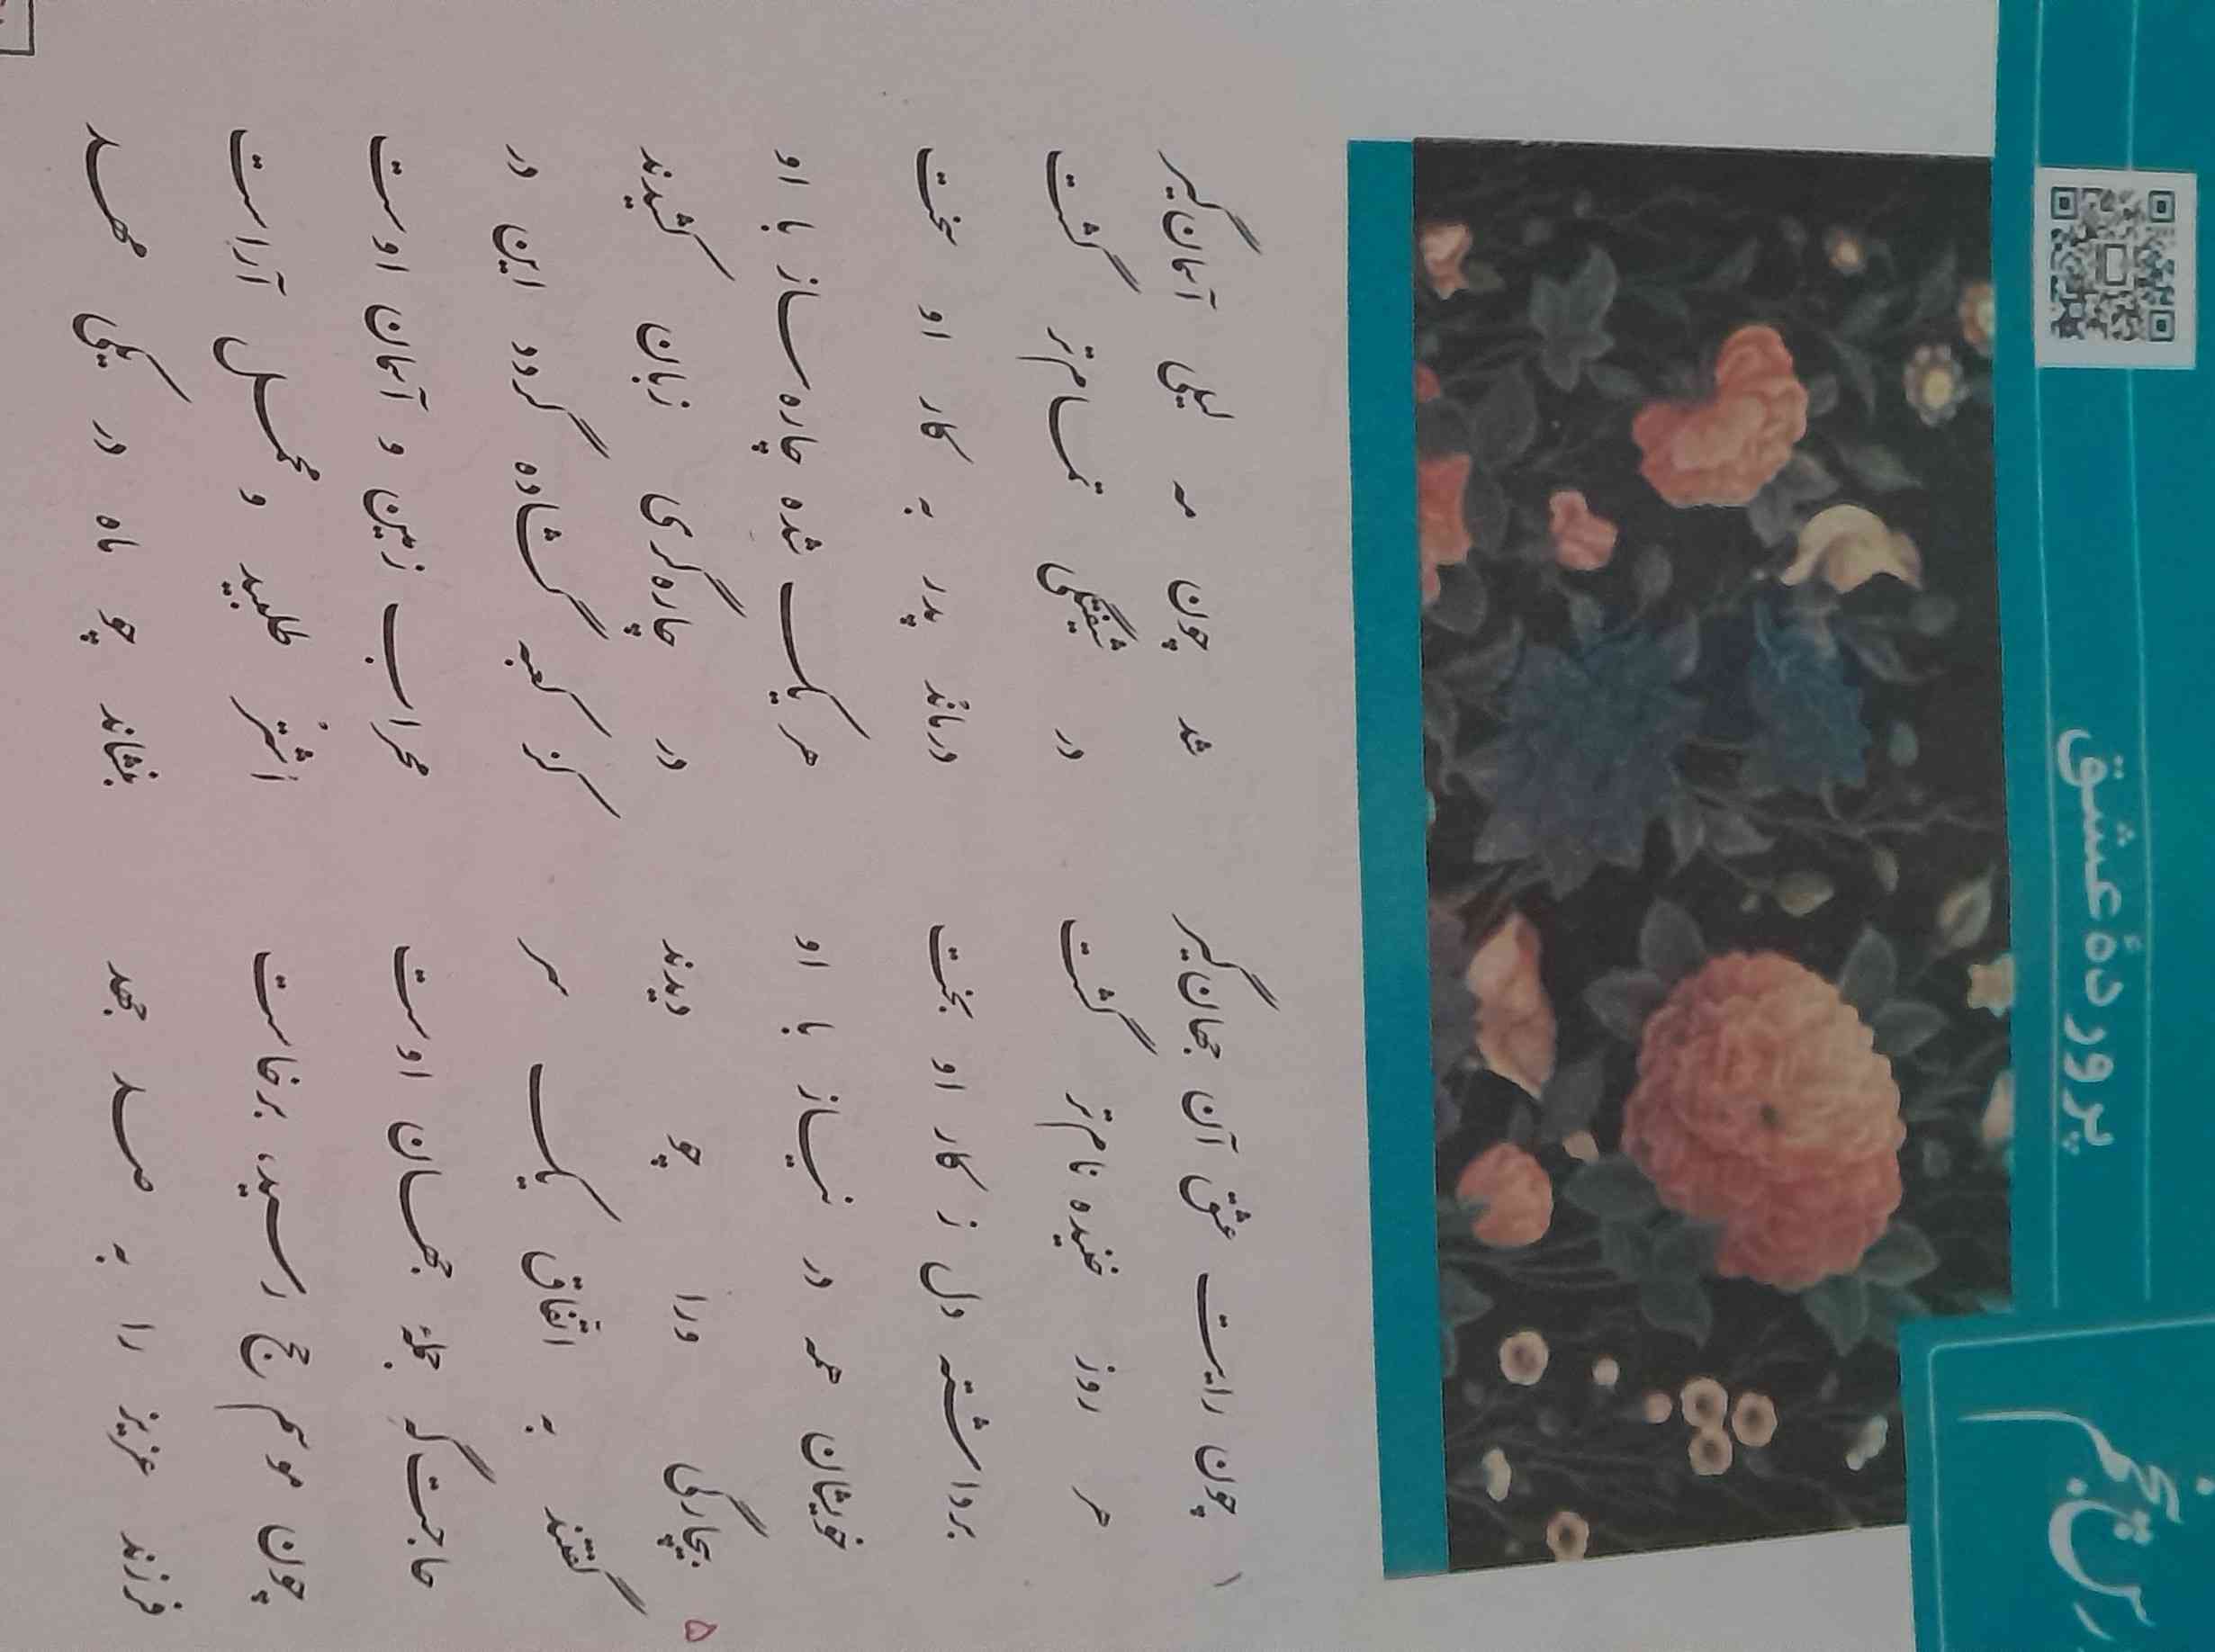 درس نهم
پروردهٔ عشق
۱ چون رایت عشق آن جهان‌گیر شد چون مه لیلی آسمان‌گیر
هر روز خنیده نام‌تر گشت در شیفتگی تمام‌تر گشت
برداشته دل ز کار او بخت درماند پدر به کار او سخت
خویشان همه در نیاز با او هر یک شده چاره‌ساز با او
۵ بیچارگی ورا چو دیدند در چاره‌گری زبان کشیدند
گفتند به اتّفاق یک سر کز کعبه گشاده گردد این در
حاجت‌گه جملهٔ جهان اوست محراب زمین و آسمان اوست
چون موسم حج رسید، برخاست اُشتر طلبید و محمل آراست
فرزند عزیز را به صد جهد بنشاند چو ماه در یکی مهد